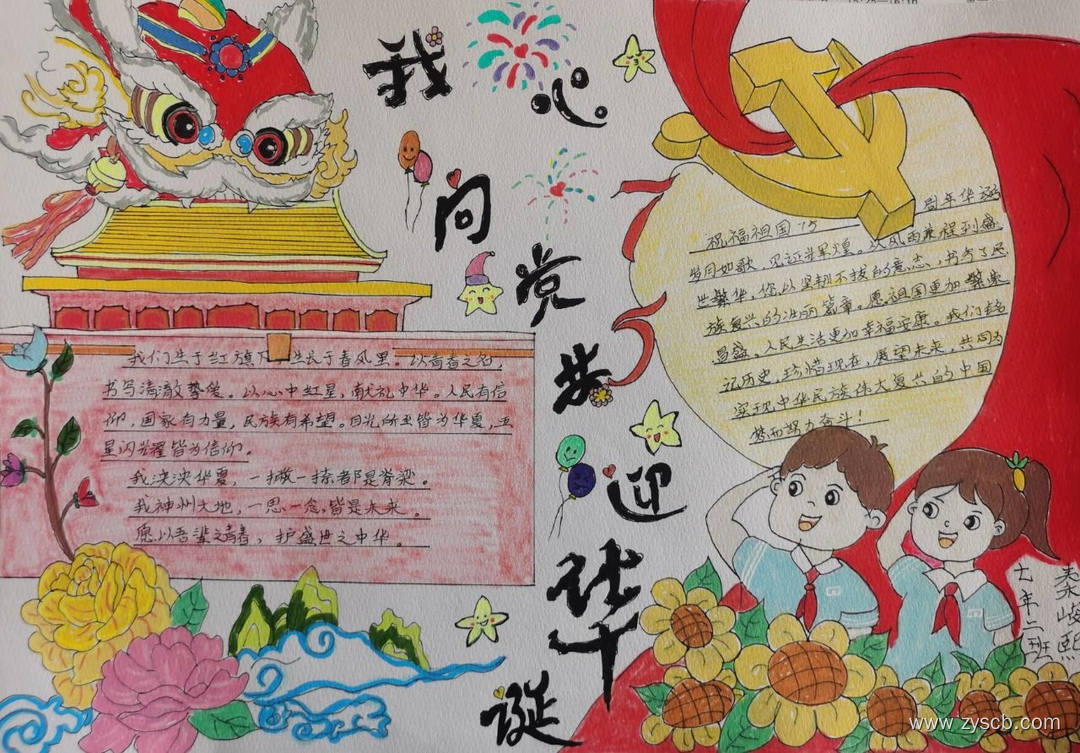 我心向党 共迎华诞
我们生于红旗下，生长于春风里。以青春之名，
书写清澈挚爱。以心中红星，献礼中华。人民有信
仰，国家有力量，民族有希望。目光所至皆为华夏，五
星闪耀皆为信仰。
我泱泱华夏，一撇一捺都是脊梁。
我神州大地，一思一念，皆是未来。
愿以吾辈之青春，护盛世之中华。
祝福祖国75周年华诞
岁月如歌，见证辉煌。从风雨兼程到盛
世繁华，你以坚韧不拔的意志，书写了民
族复兴的壮丽篇章。愿祖国更加繁荣
昌盛，人民生活更加幸福安康。我们铭
记历史，珍惜现在，展望未来，共同为
实现中华民族伟大复兴的中国
梦而努力奋斗！
七年二班
秦峻熙
www.zyscb.com